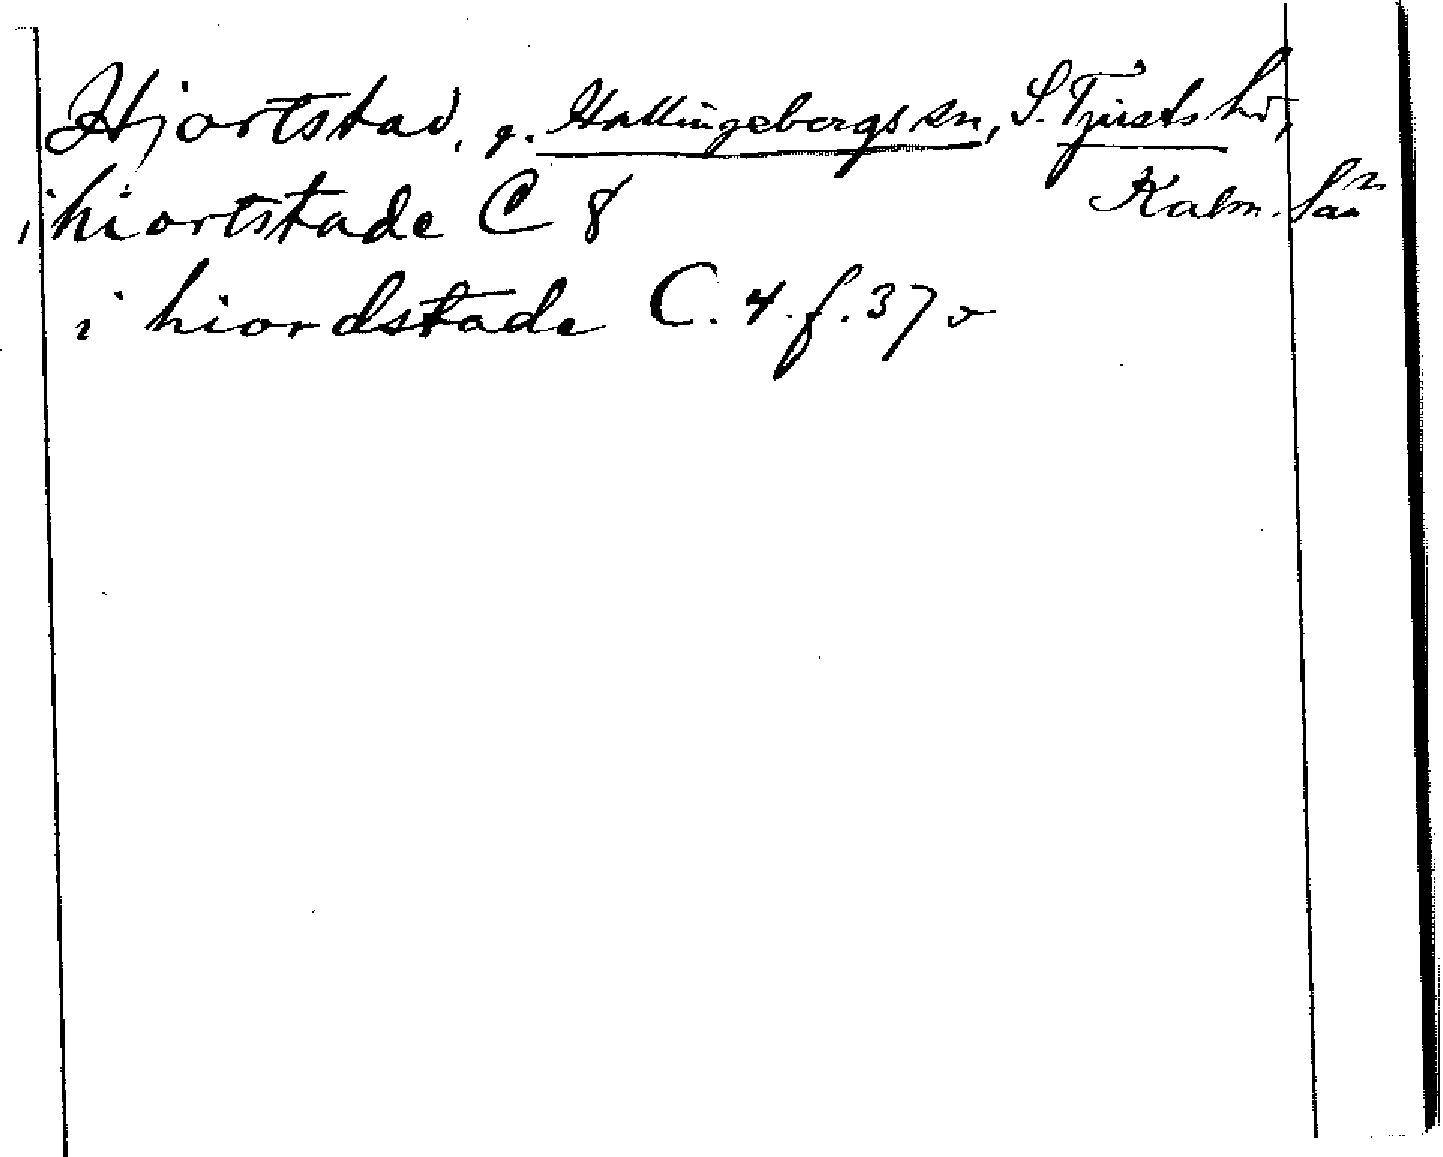 Hjortstad, g. Hallingebergs sn, S. Tjusts hd,
Kalm. län
i hiortstade C 8
i hiordstade C. 4. f. 37 v